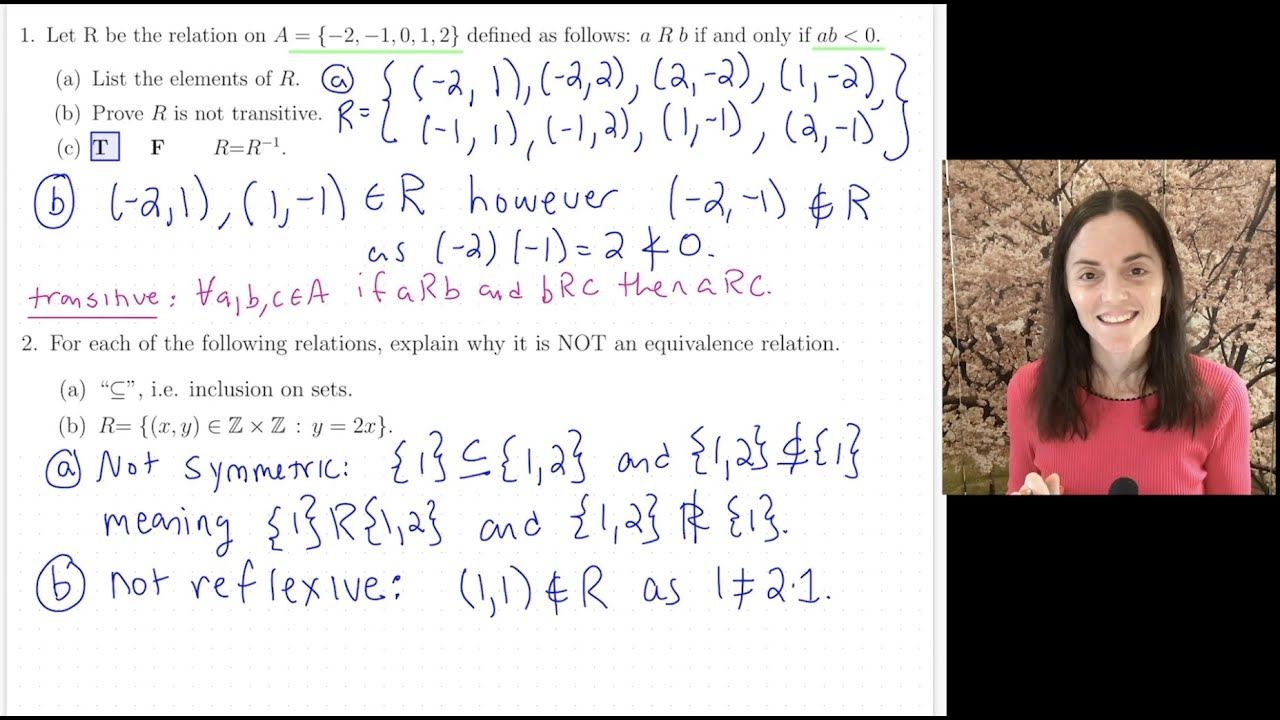 1. Let R be the relation on A = {−2, −1, 0, 1, 2} defined as follows: a R b if and only if ab < 0.
(a) List the elements of R. ⓐ {(-2, 1), (-2,2), (2,-2), (1,-2),
(b) Prove R is not transitive. R = (-1, 1), (-1,2), (1,-1), (2,-1)}
(c) T F R=R⁻¹.
ⓑ (-2,1), (1,-1) ∈ R however (-2,-1) ∉ R
as (-2)(-1) = 2 ≮ 0.
transitive: ∀a,b,c∈A if aRb and bRc then aRc.
2. For each of the following relations, explain why it is NOT an equivalence relation.
(a) “⊆”, i.e. inclusion on sets.
(b) R= {(x, y) ∈ ℤ × ℤ : y = 2x}.
ⓐ Not symmetric: {1} ⊆ {1,2} and {1,2} ⊈ {1}
meaning {1} R {1,2} and {1,2} R̸ {1}.
ⓑ not reflexive: (1,1) ∉ R as 1 ≠ 2·1.